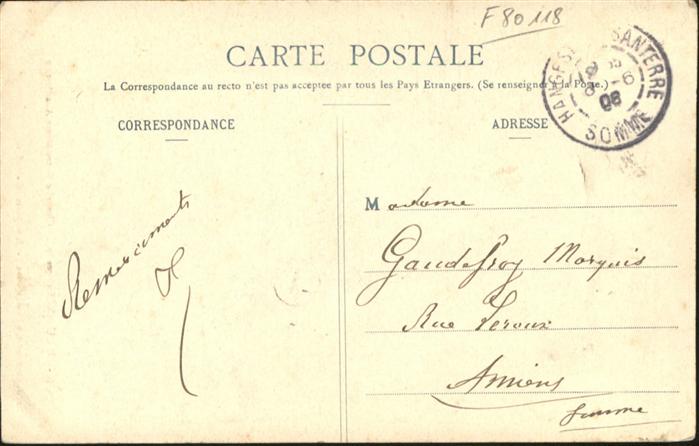 F 80 118
CARTE POSTALE
La Correspondance au recto n'est pas acceptée par tous les Pays Etrangers. (Se renseigner à la Poste.)
HANGEST SANTERRE
08
SOMME
CORRESPONDANCE
ADRESSE
Remerciements
Madame
Gaudefroy Marquis
Rue Leroux
Amiens
Somme